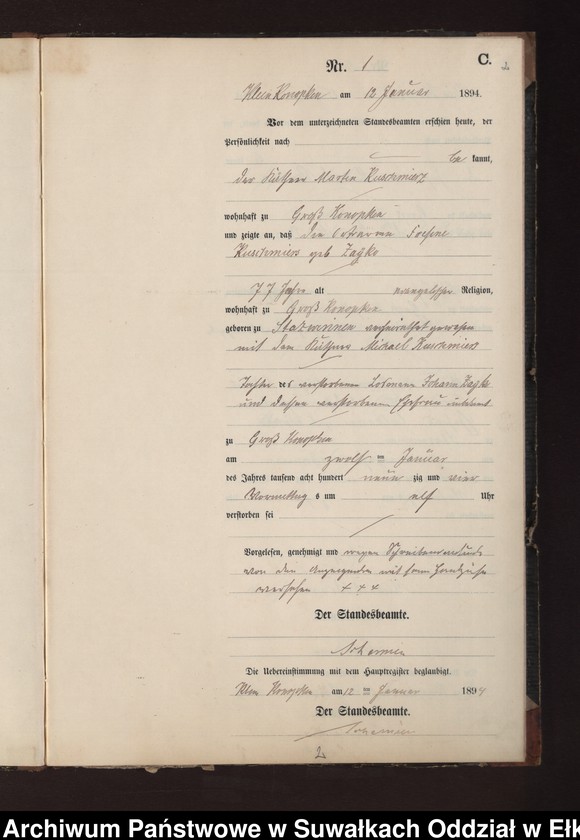 C.
2
Nr. 1
Klein Konopken am 12 Januar 1894.
Vor dem unterzeichneten Standesbeamten erschien heute, der
Persönlichkeit nach
be kannt,
der Käthner Martin Kuschmierz
wohnhaft zu Groß Konopken
und zeigte an, daß
Kuschmierz geb Zagko
77 Jahre alt evangelischer Religion,
wohnhaft zu Groß Konopken
geboren zu verheirathet gewesen
mit dem Käthner Michael Kuschmierz
Tochter des verstorbenen Johann Zagko
und dessen verstorbenen Ehefrau unbekannt
zu Groß Konopken
am zwölf ten Januar
des Jahres tausend acht hundert neun zig und vier
Vormittag s um elf Uhr
verstorben sei
Vorgelesen, genehmigt und wegen
von dem Anzeigenden mit seinem Handzeichen
versehen + + +
Der Standesbeamte.
Die Uebereinstimmung mit dem Hauptregister beglaubigt.
Klein Konopken am 12 ten Januar 1894
Der Standesbeamte.
2
Archiwum Państwowe w Suwałkach Oddział w Ełk